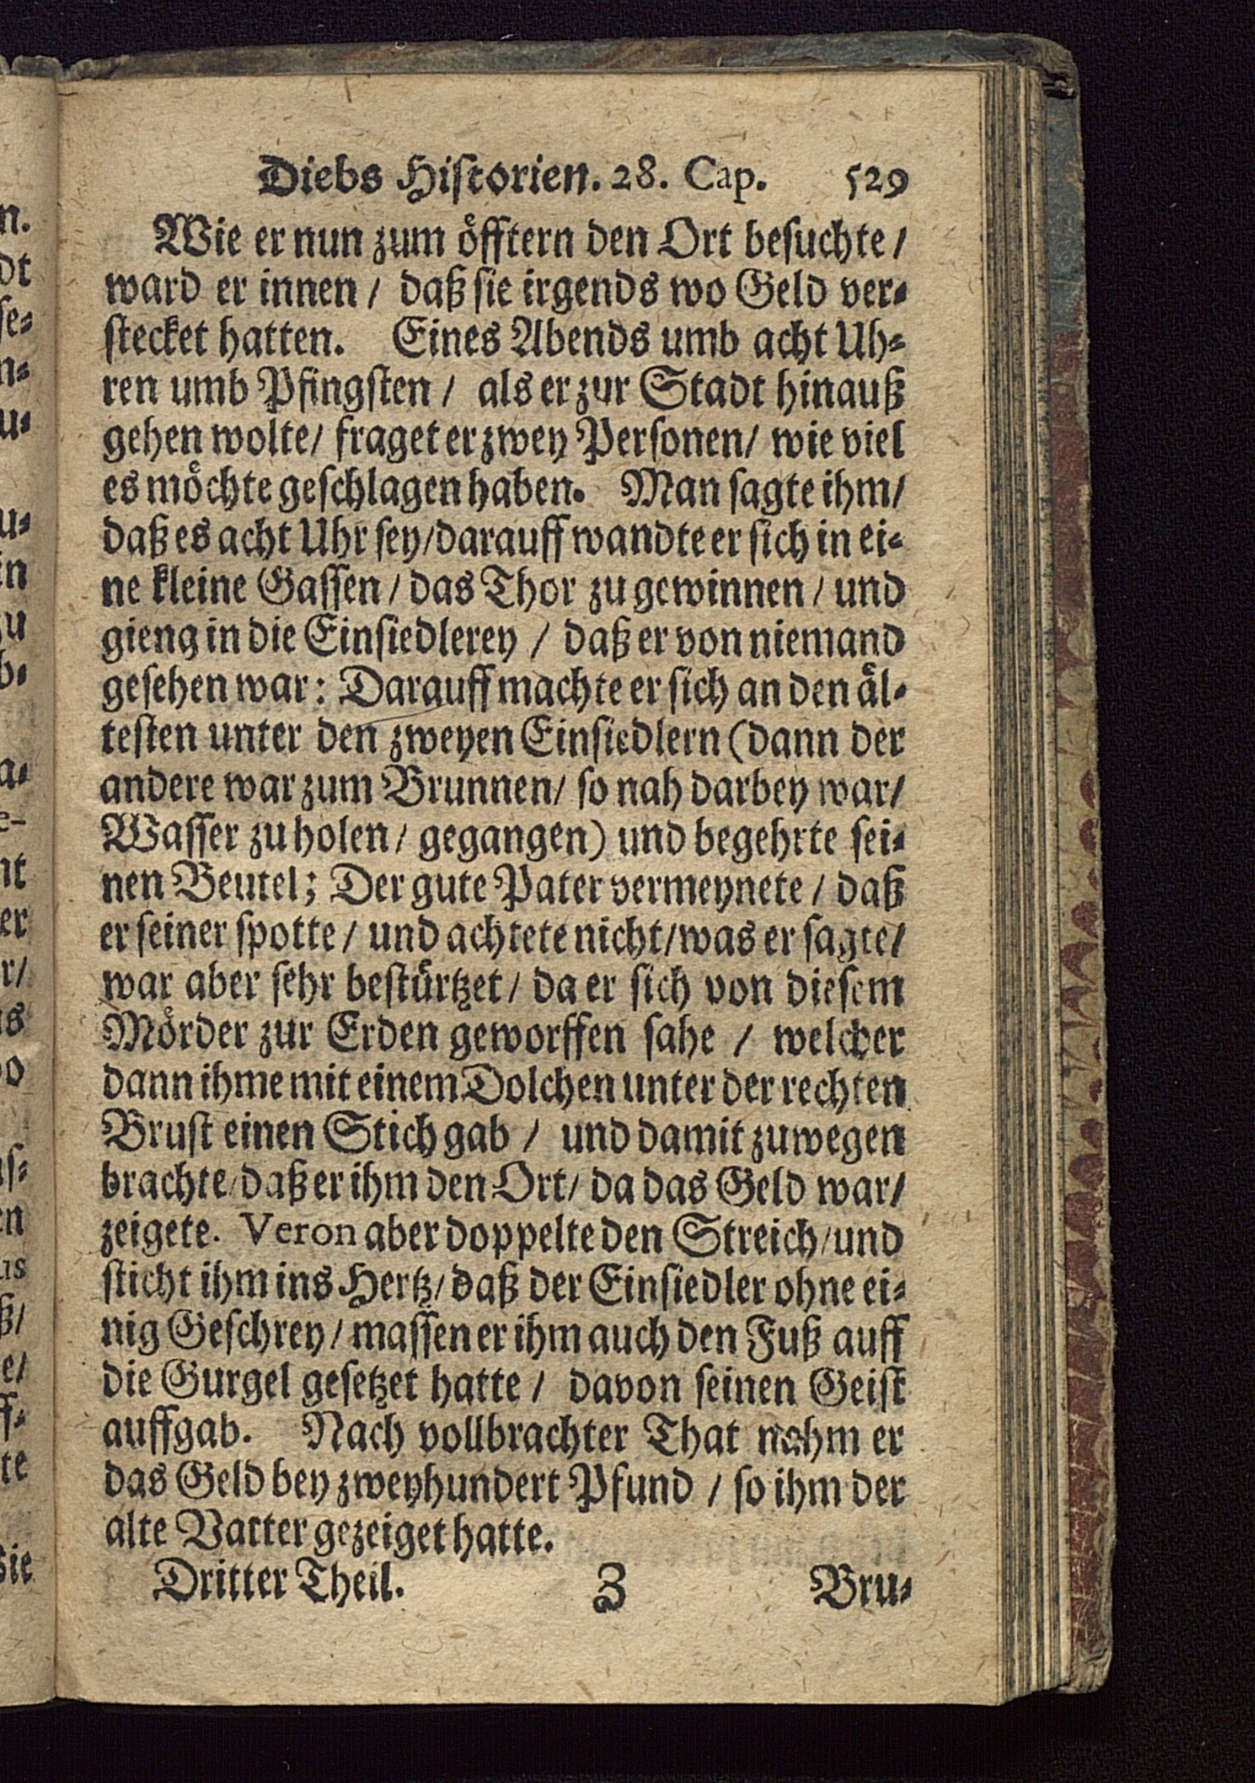 Diebs Historien. 28. Cap. 529
Wie er nun zum öfftern den Ort besuchte /
ward er innen / daß sie irgends wo Geld ver-
stecket hatten. Eines Abends umb acht Uh-
ren umb Pfingsten / als er zur Stadt hinauß
gehen wolte / fraget er zwey Personen / wie viel
es möchte geschlagen haben. Man sagte ihm /
daß es acht Uhr sey / darauff wandte er sich in ei-
ne kleine Gassen / das Thor zu gewinnen / und
gieng in die Einsiedlerey / daß er von niemand
gesehen war: Darauff machte er sich an den äl-
testen unter den zweyen Einsiedlern (dann der
andere war zum Brunnen / so nah darbey war /
Wasser zu holen / gegangen) und begehrte sei-
nen Beutel; Der gute Pater vermeynete / daß
er seiner spotte / und achtete nicht / was er sagte /
war aber sehr bestürtzet / da er sich von diesem
Mörder zur Erden geworffen sahe / welcher
dann ihme mit einem Dolchen unter der rechten
Brust einen Stich gab / und damit zuwegen
brachte / daß er ihm den Ort / da das Geld war /
zeigete. Veron aber doppelte den Streich / und
sticht ihm ins Hertz / daß der Einsiedler ohne ei-
nig Geschrey / massen er ihm auch den Fuß auff
die Gurgel gesetzet hatte / davon seinen Geist
auffgab. Nach vollbrachter That nahm er
das Geld bey zweyhundert Pfund / so ihm der
alte Vatter gezeiget hatte.
Dritter Theil. Z Bru-